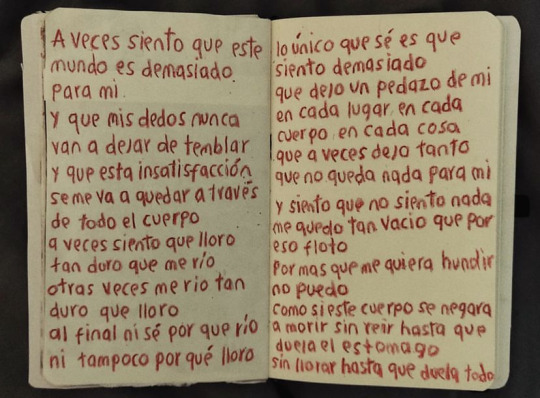 A veces siento que este
mundo es demasiado
para mi.
y que mis dedos nunca
van a dejar de temblar
y que esta insatisfacción
se me va a quedar a través
de todo el cuerpo
a veces siento que lloro
tan duro que me río
otras veces me rio tan
duro que lloro
al final ni sé por que río
ni tampoco por qué lloro
lo único que sé es que
siento demasiado
que dejo un pedazo de mi
en cada lugar, en cada
cuerpo en cada cosa
que a veces dejo tanto
que no queda nada para mi
y siento que no siento nada
me quedo tan vacio que por
eso floto
Por mas que me quiera hundir
no puedo
como si este cuerpo se negara
a morir sin reir hasta que
duela el estomago
sin llorar hasta que duela todo